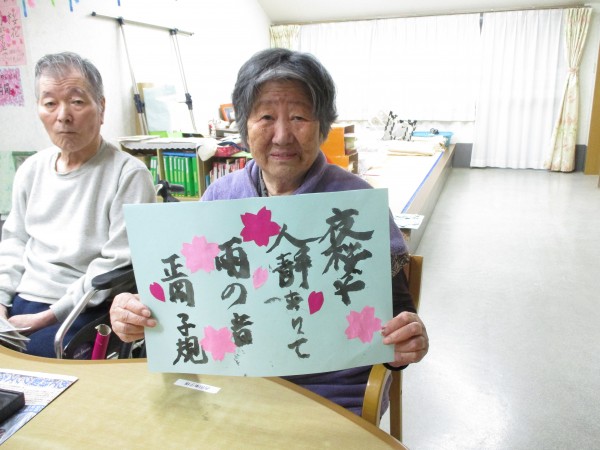 夜桜や
人静まりて
雨の音
正岡子規